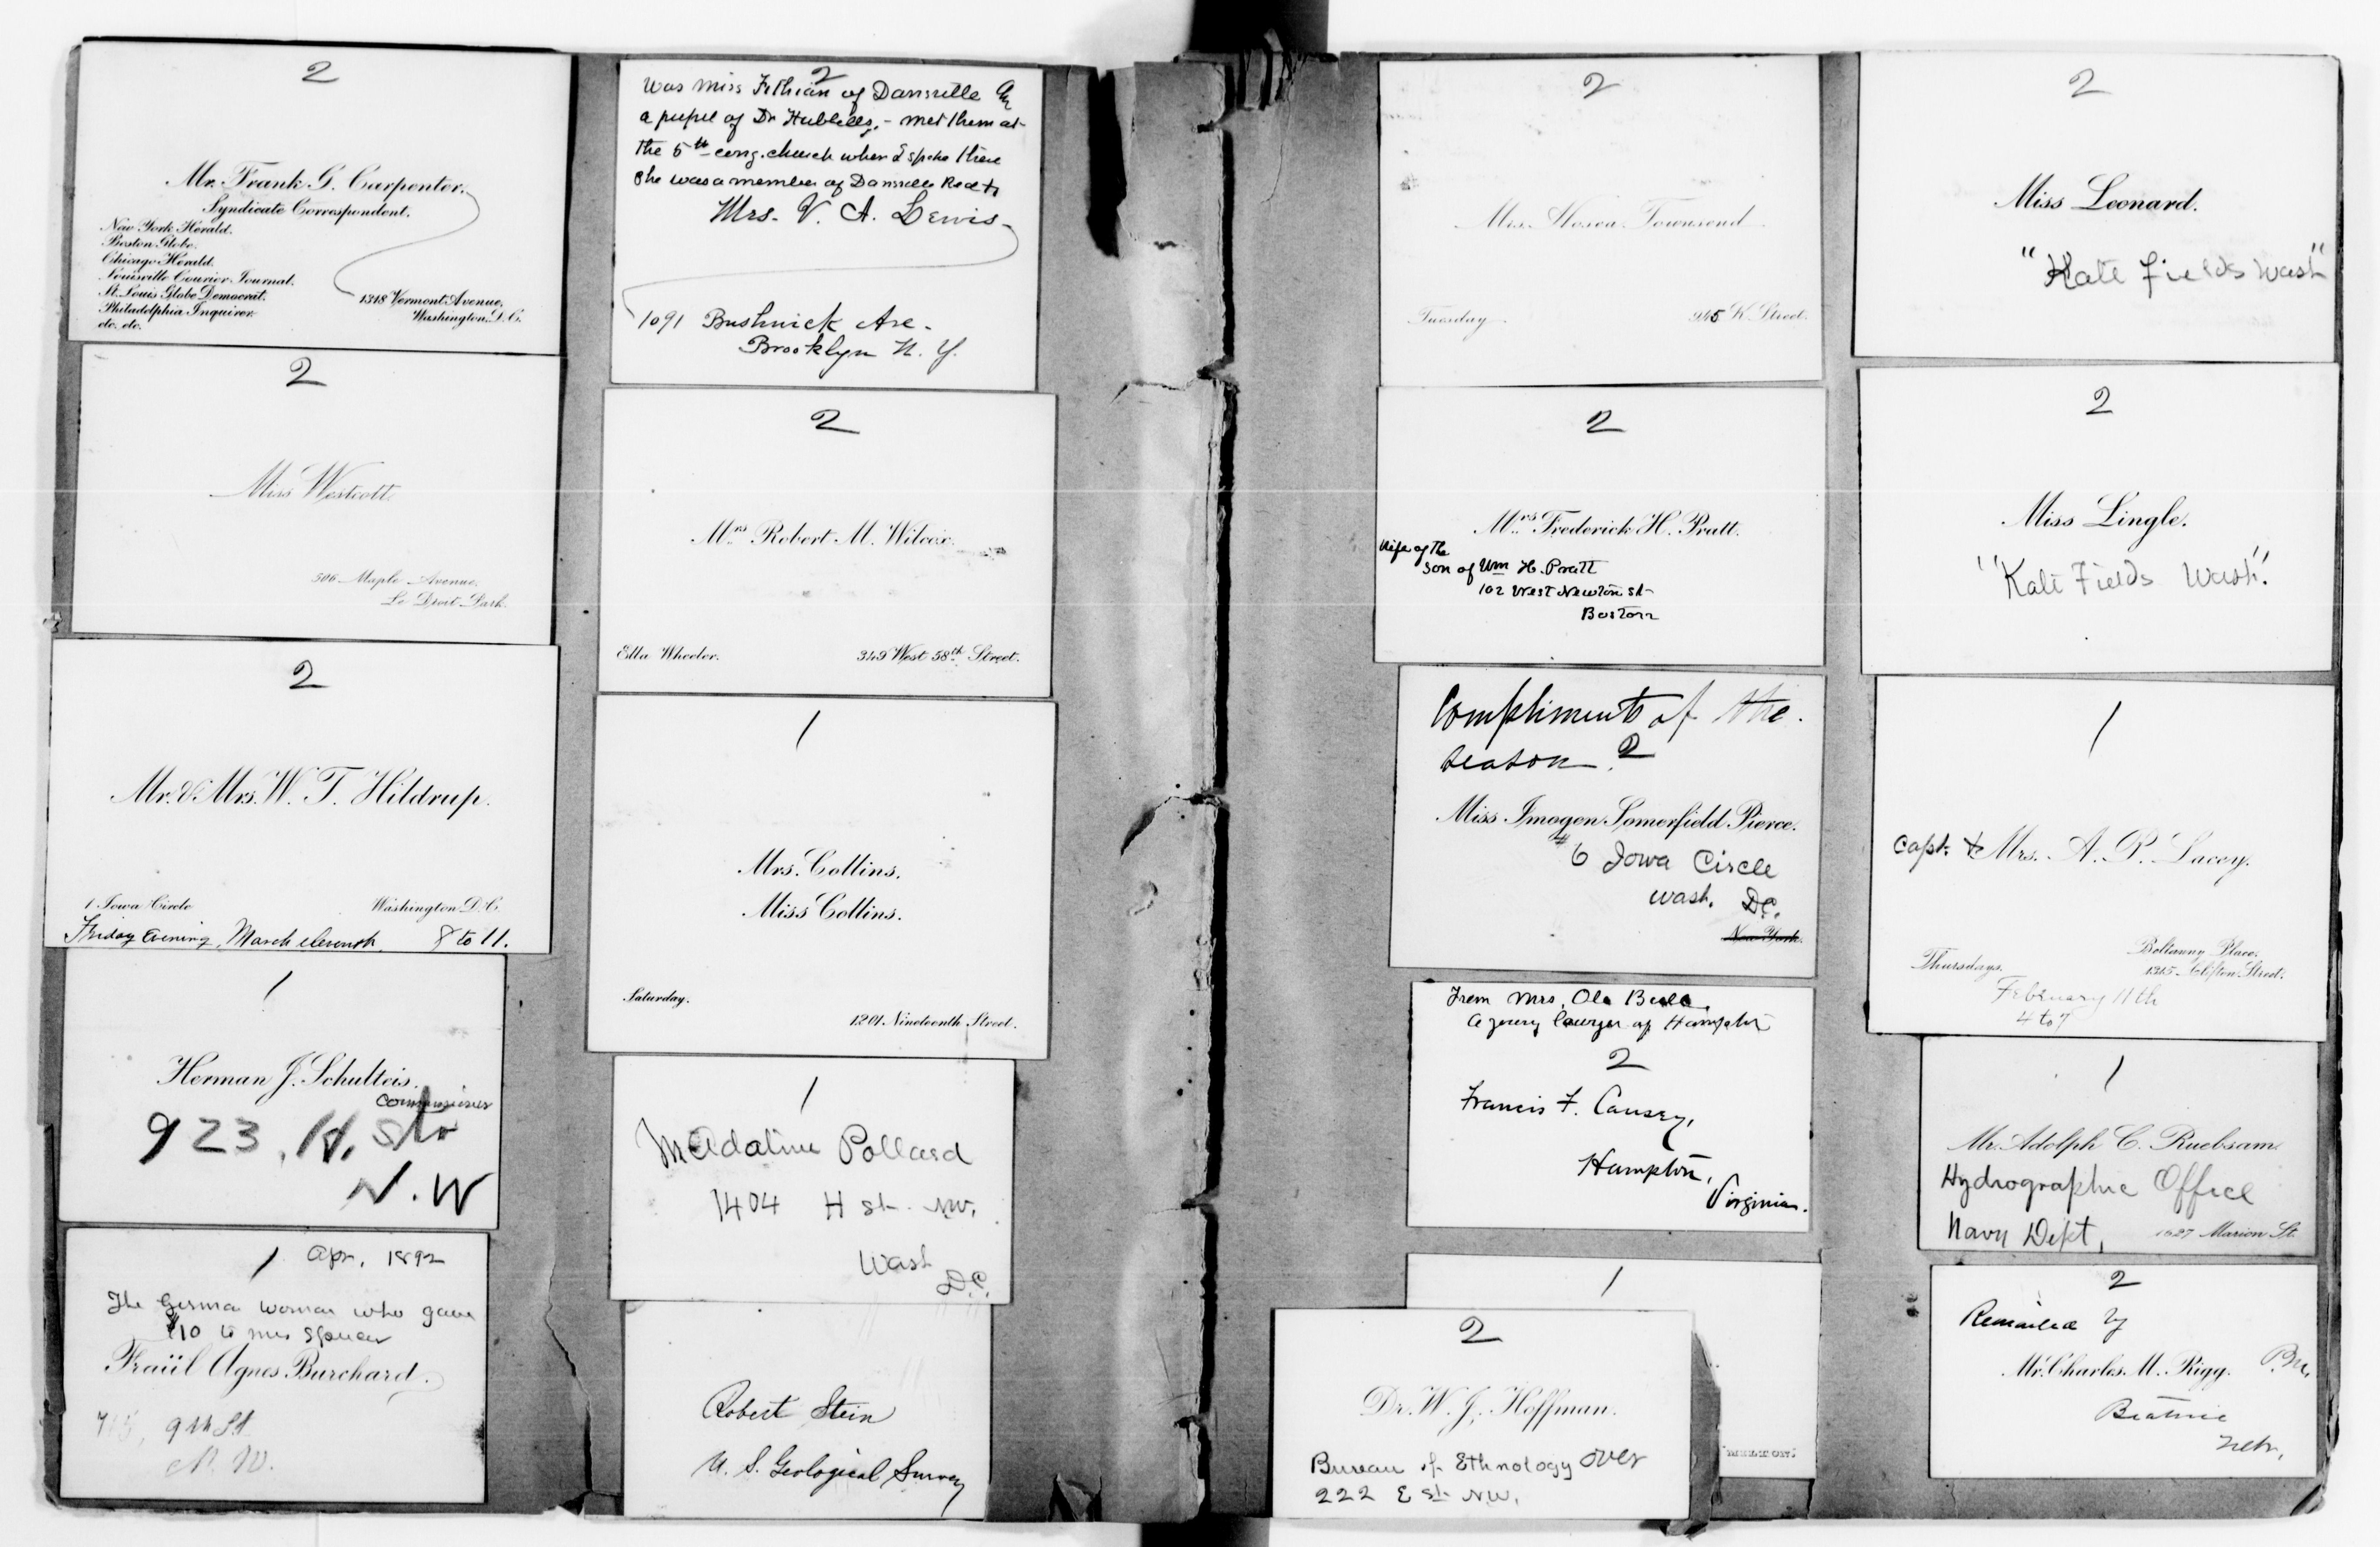 2
Mr. Frank G. Carpenter.
Syndicate Correspondent.
New York Herald.
Boston Globe.
Chicago Herald.
Louisville Courier-Journal.
St. Louis Globe Democrat.
Philadelphia Inquirer.
etc. etc.
1318 Vermont Avenue,
Washington, D.C.
2
Miss Westcott.
506 Maple Avenue,
Le Droit Park.
2
Mr. & Mrs. W. T. Hildrup.
1 Iowa Circle
Washington D.C.
Friday Evening, March eleventh 8 to 11.
1
Herman J. Schulteis.
Commissioner
923, H, St.
N.W
1 Apr, 1892
The German woman who gave
$10 to Mrs Spencer
Fraül Agnes Burchard.
715, 9th St.
N. W.
2
Was Miss Fithian of Dansville
a pupil of Dr Hubbells, - met them at
the 5th cong. church when I spoke there
she was a member of Dansville Red +
Mrs. V. A. Lewis
1091 Bushwick Ave.
Brooklyn N. Y.
2
Mrs Robert M. Wilcox.
Ella Wheeler.
349 West 58th Street.
1
Mrs. Collins.
Miss Collins.
Saturday.
1201 Nineteenth Street.
1
Madaline Pollard
1404 H St. NW.
Wash
D.C.
Robert Stein
U. S. Geological Survey
2
Mrs. Hosea Townsend
Tuesday
945 K Street.
2
Mrs. Frederick H. Pratt.
Wife of the
son of Wm H. Pratt
102 West Newton St
Boston
Compliments of the
season. 2
Miss Imogen Somerfield Pierce.
# 6 Iowa Circle
Wash. D.C.
New York.
From Mrs. Ole Bull
a young lawyer of Hampton
2
Francis F. Causey,
Hampton,
Virginia.
1
MILTON.
2
Dr. W. J. Hoffman.
Bureau of Ethnology over
222 E St. N.W.
2
Miss Leonard.
"Kate Fields Wash"
2
Miss Lingle.
"Kate Fields Wash".
1
Capt. & Mrs. A. P. Lacey.
Thursdays.
Place,
1315 Clifton Street.
February 11th
4 to 7
1
Mr. Adolph C. Ruebsam.
Hydrographic Office
Navy Dept,
1627 Marion St.
2
Remailed by
Mr. Charles M. Rigg. P.M.
Beatrice
Nebr,